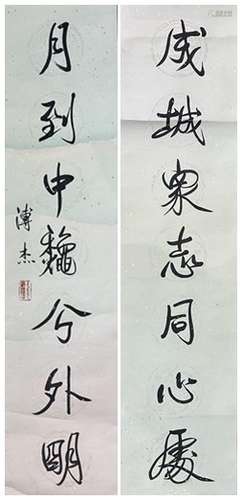 成城衆志同心處
月到中龝分外明
溥杰